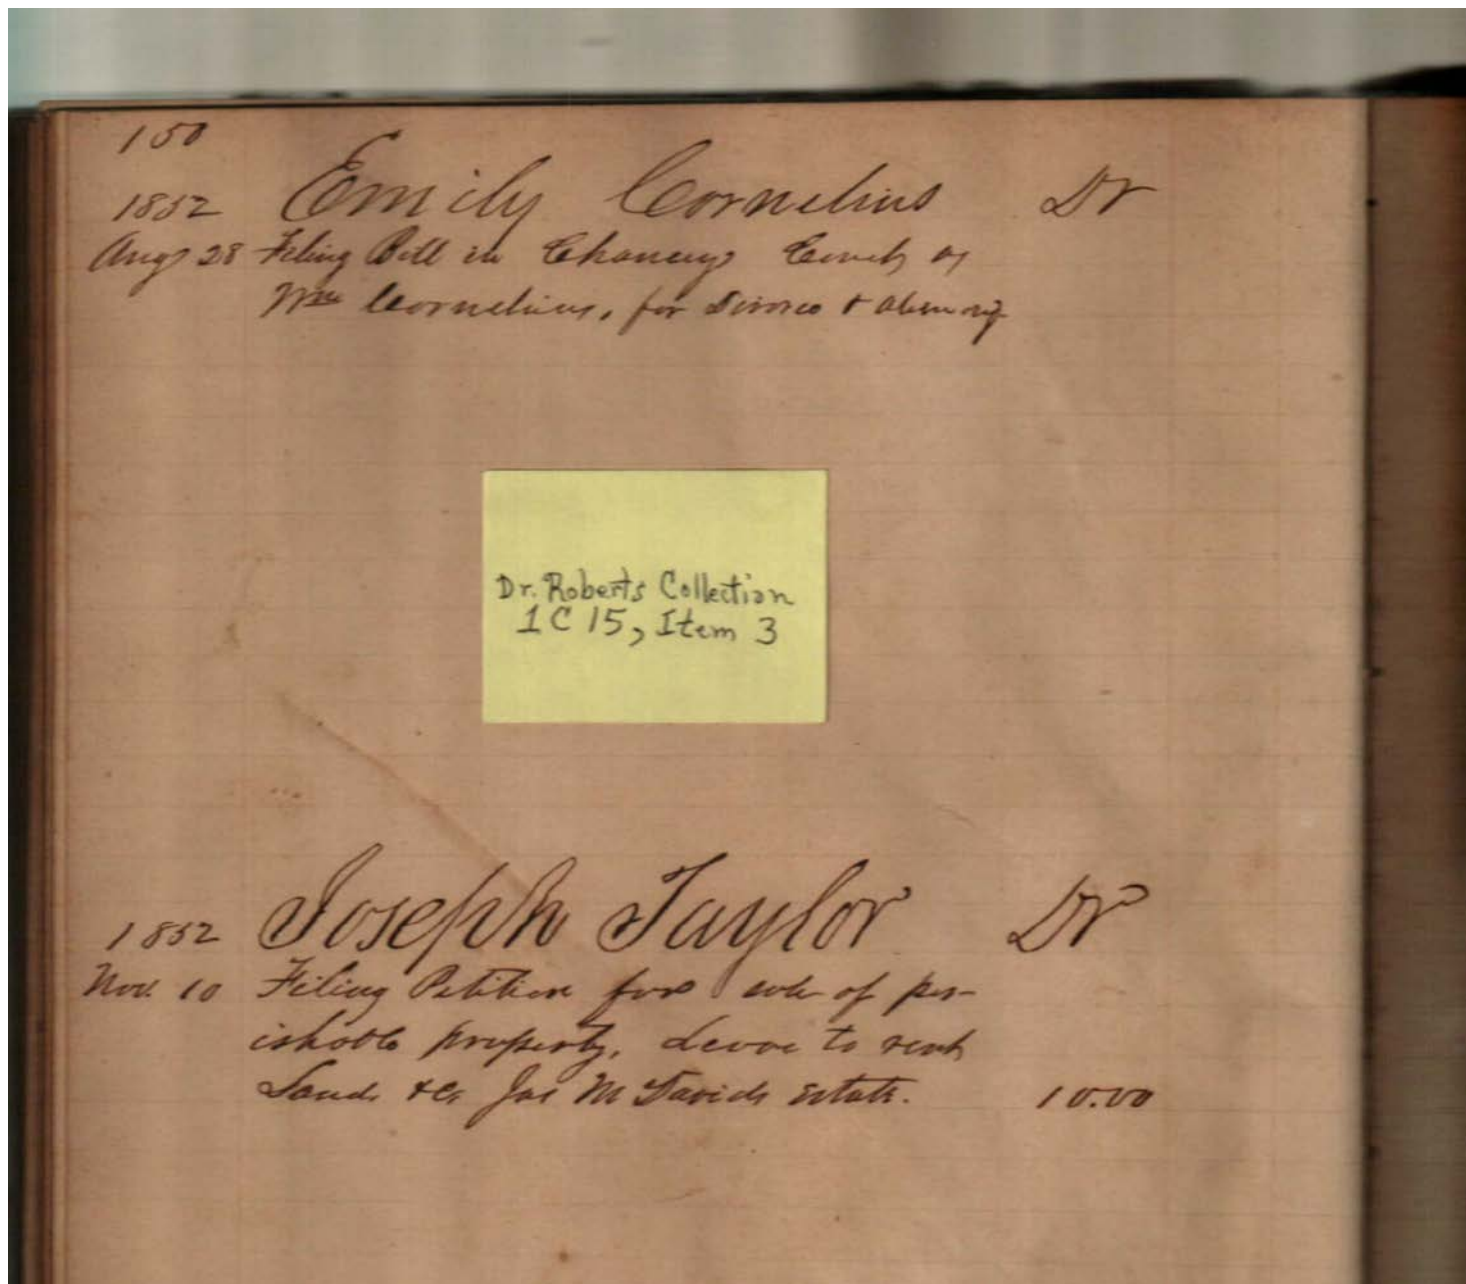 150
1852 Emily Cornelius Dr
Aug 28 Filing Bill in Chancery
Wm Cornelius, for Divorce & alimony
Dr. Roberts Collection
1C 15, Item 3
1852 Joseph Taylor Dr
Nov. 10 Filing Petition for sale of per-
ishable property, Leave to rent
Land &c, Jas McDavids Estate. 10.00